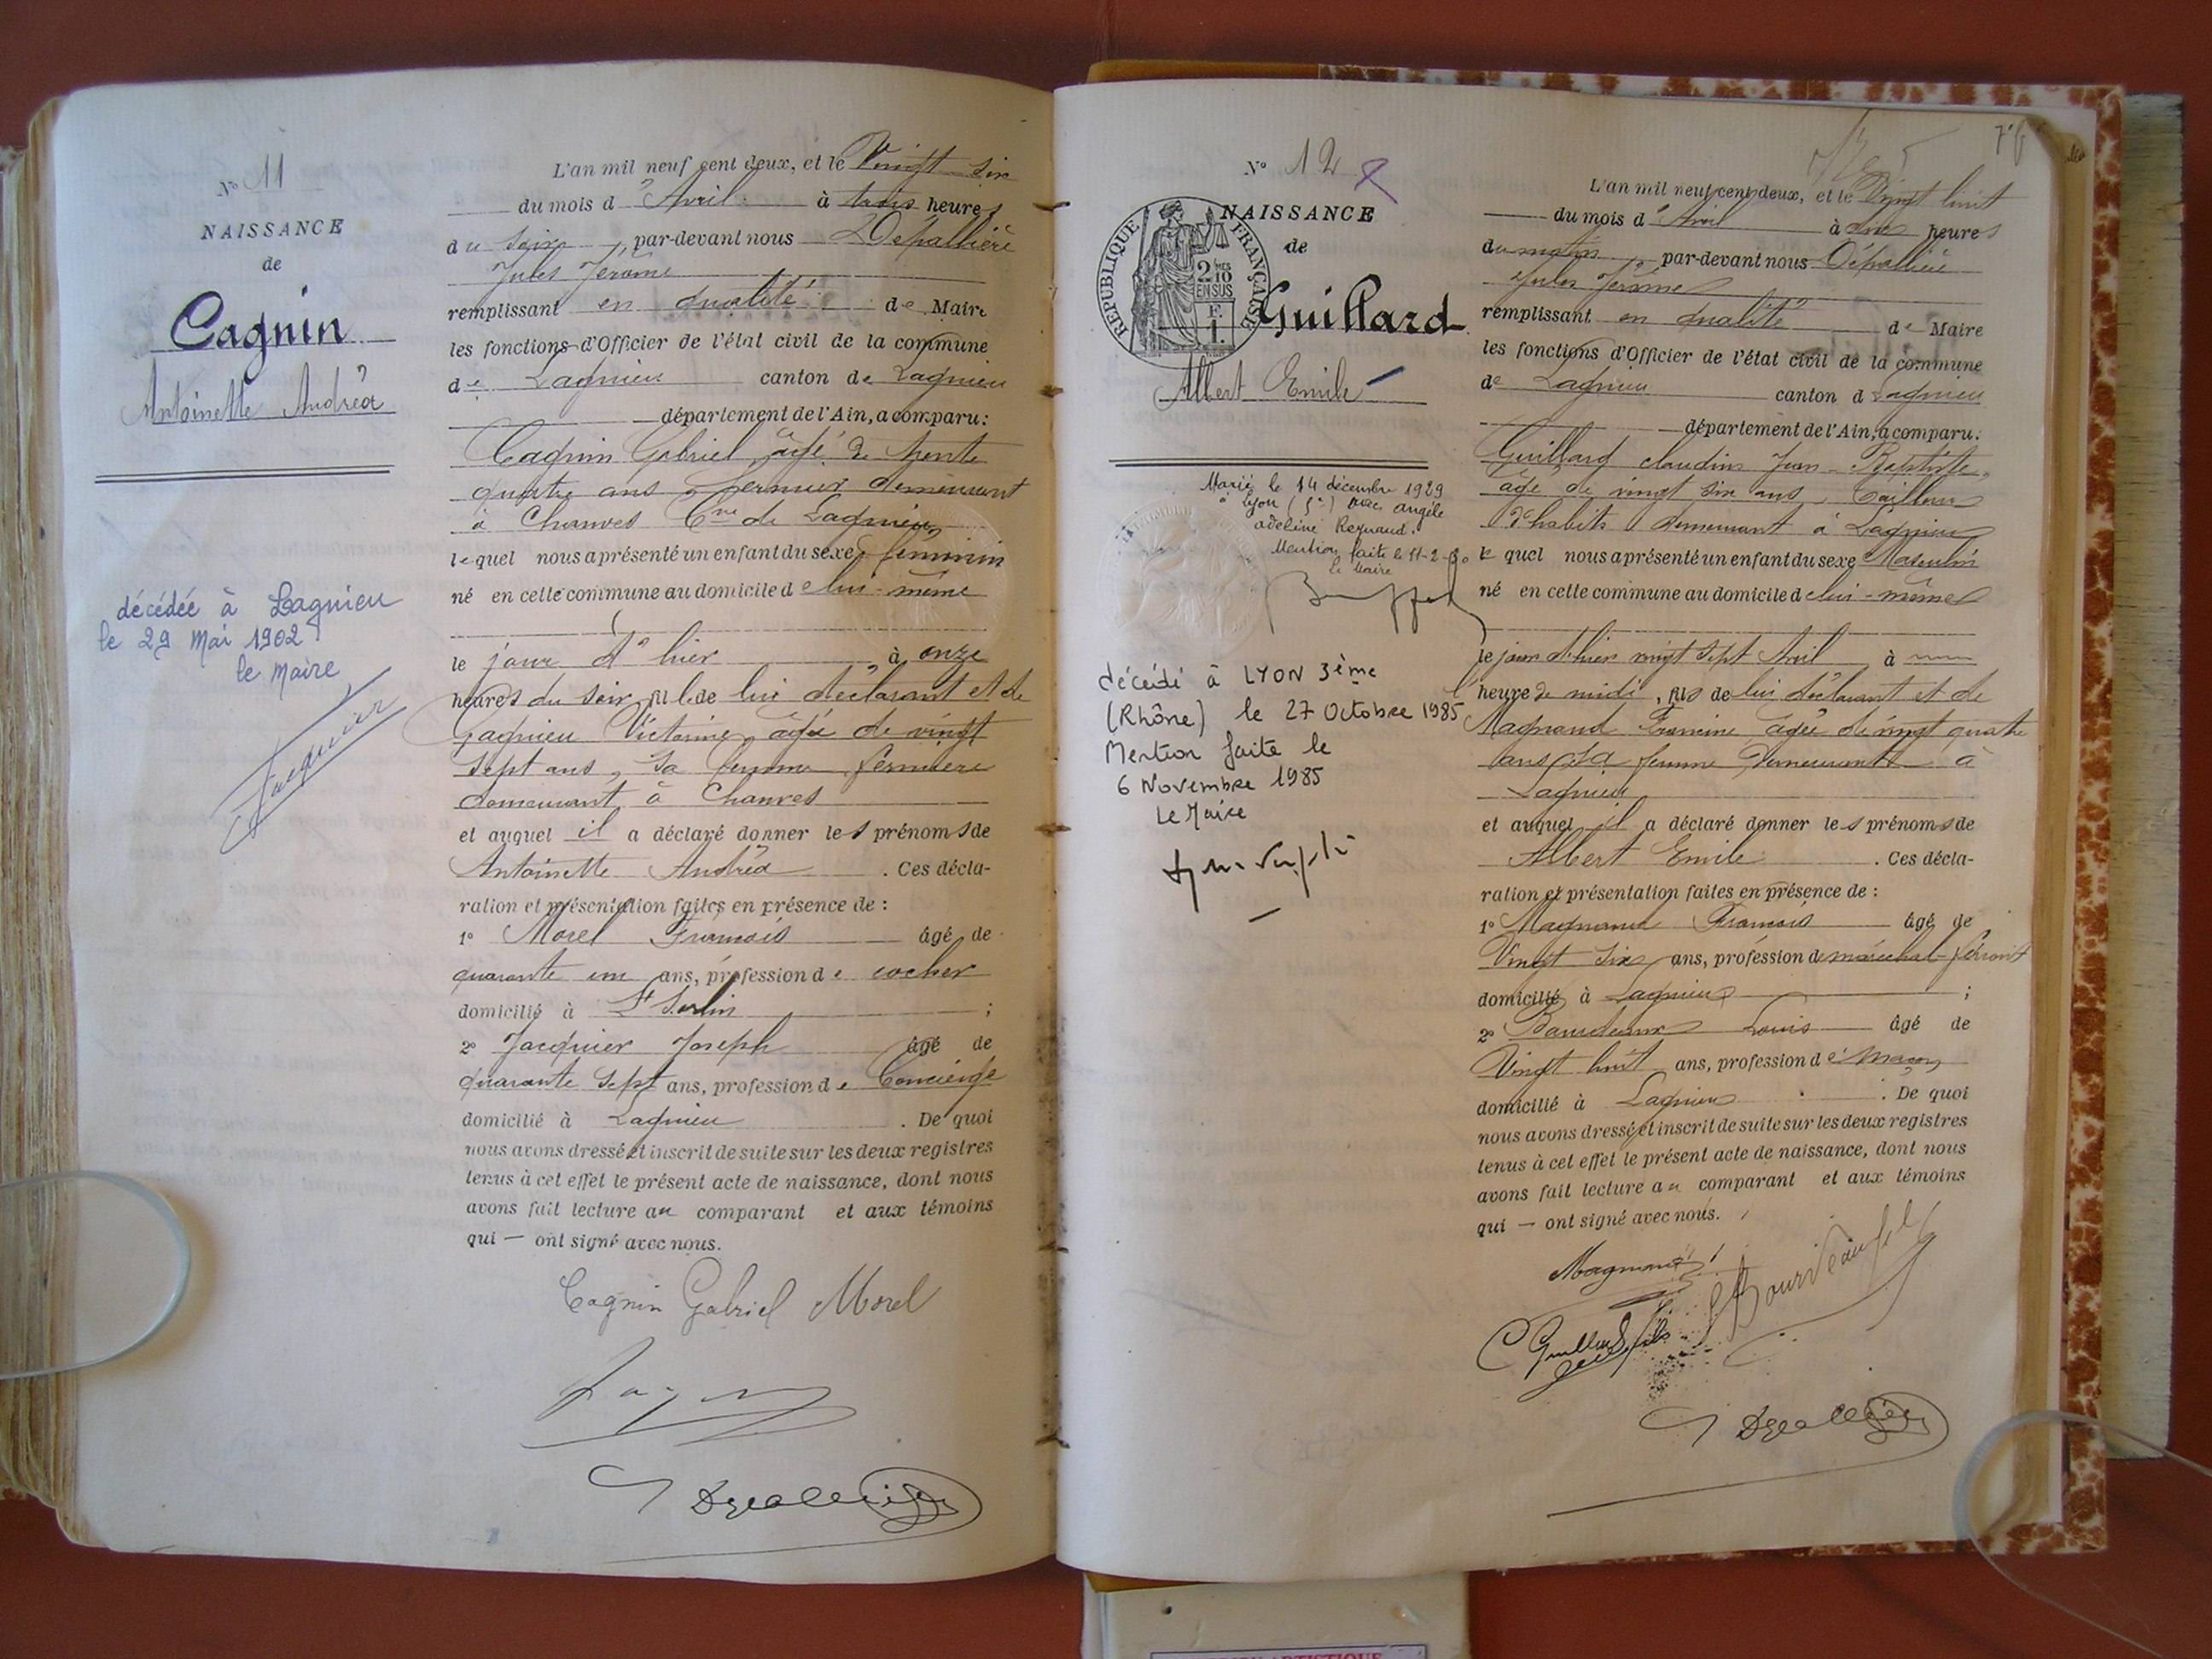 Nº 11
NAISSANCE
de
Cagnin
Antoinette Andréa
décédée à Lagnieu
le 29 Mai 1902
le Maire
Jacquier
L'an mil neuf cent deux, et le Vingt six
du mois d'Avril à trois heures
du soir, par-devant nous Dépallière
Jules Jérôme
remplissant en qualité de Maire
les fonctions d'Officier de l'état civil de la commune
de Lagnieu canton de Lagnieu
département de l'Ain, a comparu:
Cagnin Gabriel, âgé de trente
quatre ans, fermier demeurant
à Chanves Cne de Lagnieu
lequel nous a présenté un enfant du sexe féminin
né en cette commune au domicile de lui-même
le jour d'hier à onze
heures du soir, fille de lui déclarant et de
Gagnieu Victorine, âgée de vingt
sept ans, sa femme, fermière
demeurant à Chanves
et auquel il a déclaré donner les prénoms de
Antoinette Andréa. Ces décla-
ration et présentation faites en présence de :
1º Morel François âgé de
quarante un ans, profession de cocher
domicilié à St Sorlin ;
2º Jacquier Joseph âgé de
quarante sept ans, profession de Concierge
domicilié à Lagnieu. De quoi
nous avons dressé et inscrit de suite sur les deux registres
tenus à cet effet le présent acte de naissance, dont nous
avons fait lecture au comparant et aux témoins
qui — ont signé avec nous.
Cagnin Gabriel Morel
Nº 12
NAISSANCE
de
RÉPUBLIQUE FRANÇAISE
2/10 EN SUS
F. 1.
Guillard
Albert Emile
Marié le 14 décembre 1929
à Lyon (5e) avec Angèle
Adeline Reynaud.
Mention faite le 11-2-30
Le Maire
décédé à LYON 3ème
(Rhône) le 27 Octobre 1985
Mention faite le
6 Novembre 1985
Le Maire
L'an mil neuf cent deux, et le Vingt huit
du mois d'Avril à heures
du matin par-devant nous Dépallière
Jules Jérôme
remplissant en qualité de Maire
les fonctions d'Officier de l'état civil de la commune
de Lagnieu canton d Lagnieu
département de l'Ain, a comparu:
Guillard Claudius Jean-Baptiste,
âgé de vingt six ans, Tailleur
d'habits demeurant à Lagnieu
lequel nous a présenté un enfant du sexe Masculin
né en cette commune au domicile de lui-même
le jour d'hier vingt sept Avril à
l'heure de midi, fils de lui déclarant et de
Magnand Francine âgée de vingt quatre
ans, sa femme demeurant à
Lagnieu
et auquel il a déclaré donner les prénoms de
Albert Emile. Ces décla-
ration et présentation faites en présence de :
1º Magnand François âgé de
Vingt six ans, profession de maréchal-ferrant
domicilié à Lagnieu ;
2º Louis âgé de
Vingt huit ans, profession de Maçon
domicilié à Lagnieu. De quoi
nous avons dressé et inscrit de suite sur les deux registres
tenus à cet effet le présent acte de naissance, dont nous
avons fait lecture au comparant et aux témoins
qui — ont signé avec nous.
Magnand
C Guillard fils